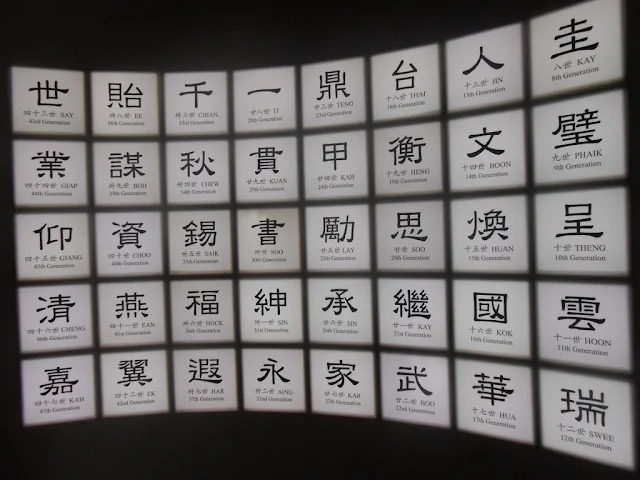 圭
八世 KAY
8th Generation
璧
九世 PHAIK
9th Generation
呈
十世 THENG
10th Generation
雲
十一世 HOON
11th Generation
瑞
十二世 SWEE
12th Generation
人
十三世 JIN
13th Generation
文
十四世 BOON
14th Generation
煥
十五世 HUAN
15th Generation
國
十六世 KOK
16th Generation
華
十七世 HUA
17th Generation
台
十八世 THAI
18th Generation
衡
十九世 HENG
19th Generation
思
廿世 SOO
20th Generation
繼
廿一世 KAY
21st Generation
武
廿二世 BOO
22nd Generation
鼎
廿三世 TENG
23rd Generation
甲
廿四世 KAH
24th Generation
勵
廿五世 LAY
25th Generation
承
廿六世 SIN
26th Generation
家
廿七世 KAR
27th Generation
一
廿八世 IT
28th Generation
貫
廿九世 KUAN
29th Generation
書
卅世 SOO
30th Generation
紳
卅一世 SIN
31st Generation
永
卅二世 AING
32nd Generation
千
卅三世 CHAN
33rd Generation
秋
卅四世 CHEW
34th Generation
錫
卅五世 SAIK
35th Generation
福
卅六世 HOCK
36th Generation
遐
卅七世 HAR
37th Generation
貽
卅八世 EE
38th Generation
謀
卅九世 BOH
39th Generation
資
四十世 CHOO
40th Generation
燕
四十一世 EAN
41st Generation
翼
四十二世 EK
42nd Generation
世
四十三世 SAY
Generation
業
四十四世 GIAP
44th Generation
仰
四十五世 GIANG
45th Generation
清
四十六世 CHENG
46th Generation
嘉
四十七世 KAH
47th Generation